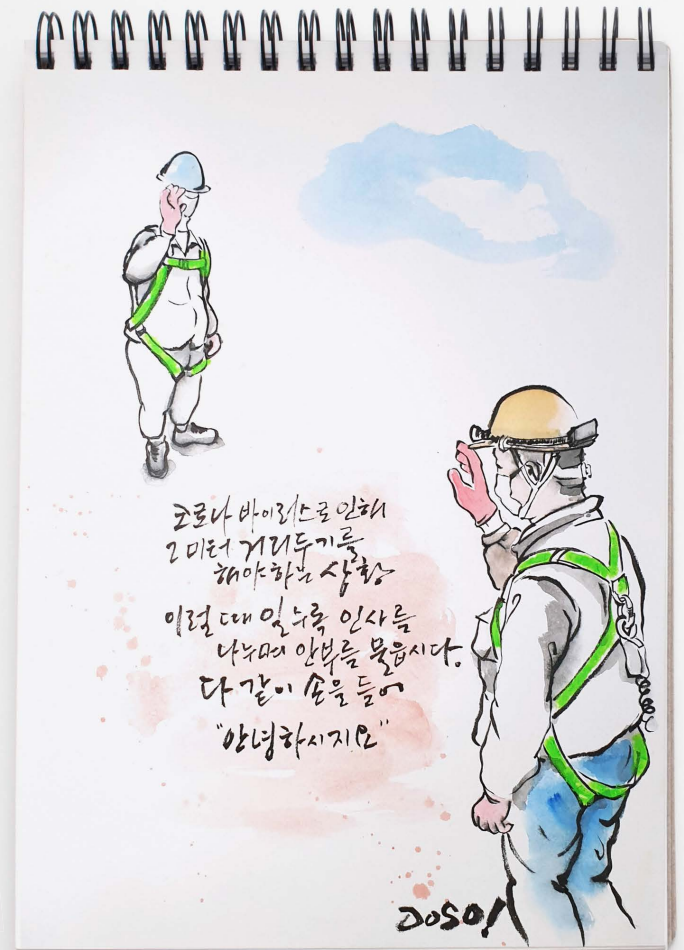 코로나 바이러스로 인해
2미터 거리두기를
해야하는 상황
이럴 때 일수록 인사를
나누며 안부를 물읍시다.
다 같이 손을 들어
"안녕하시지요"
DOSO!